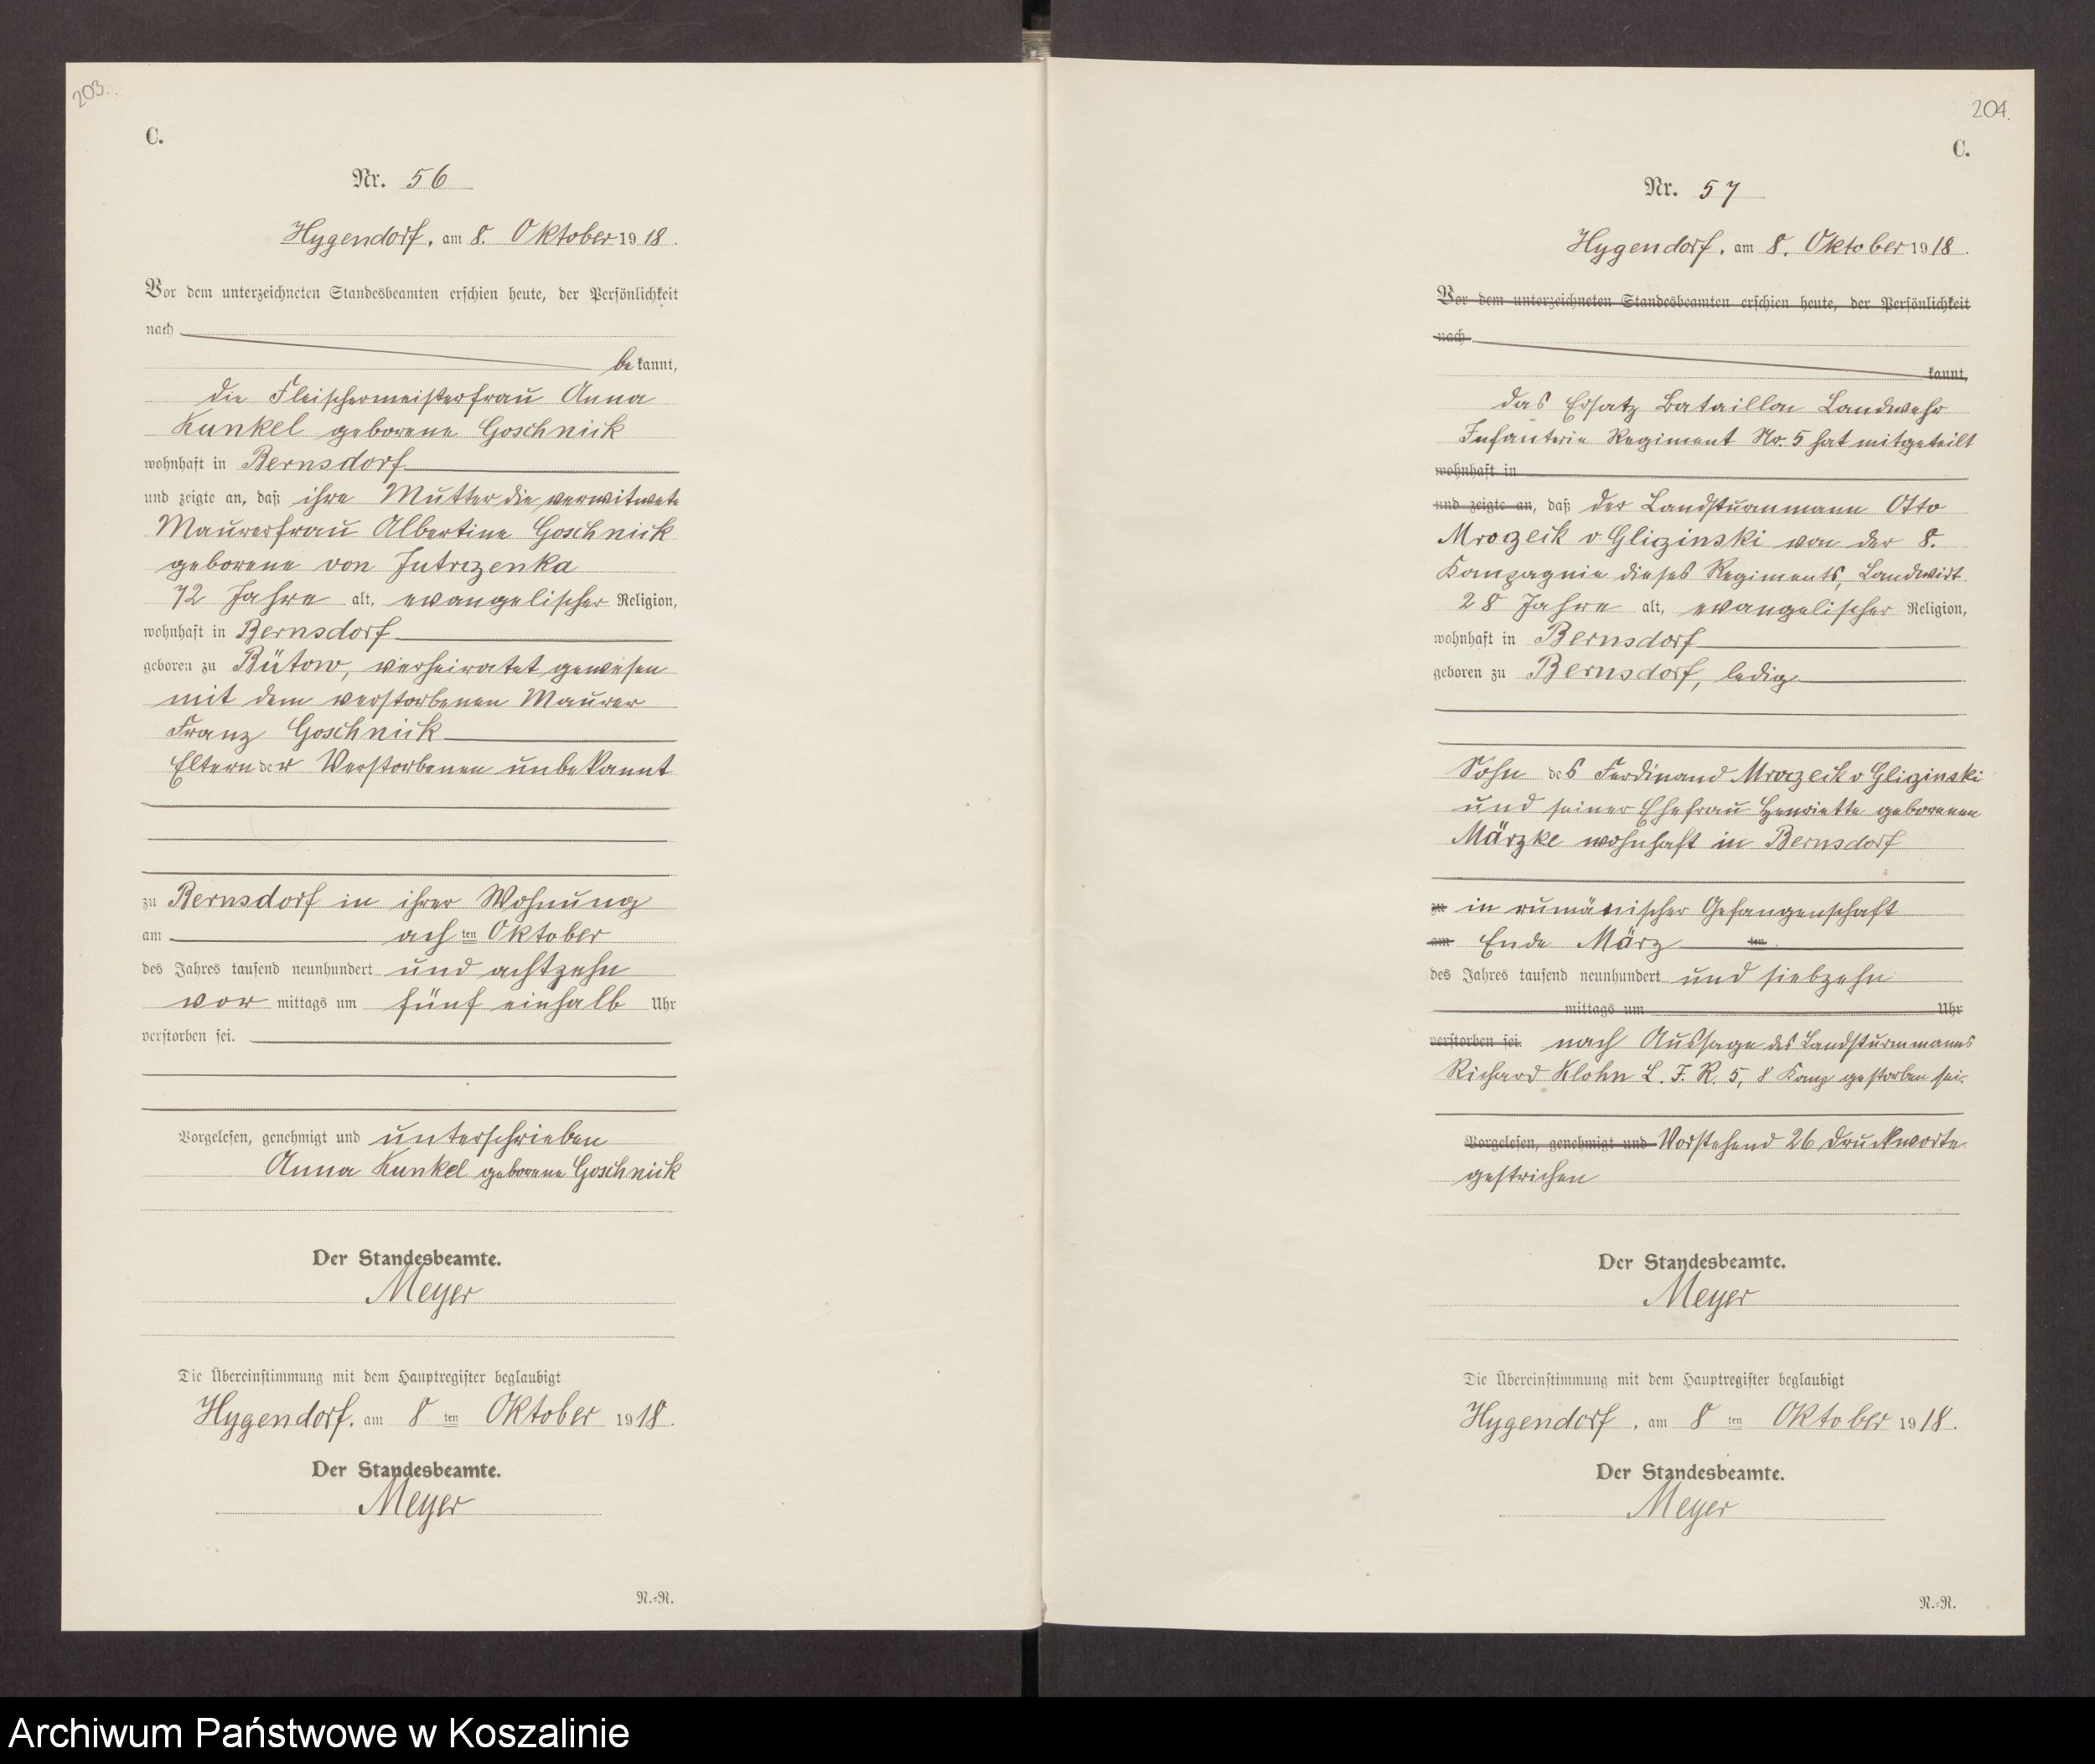 203.
C.
Nr. 56
Hygendorf, am 8. Oktober 1918.
Vor dem unterzeichneten Standesbeamten erschien heute, der Persönlichkeit
nach
bekannt,
die Fleischermeisterfrau Anna
Kunkel geborene Goschnick
wohnhaft in Bernsdorf
und zeigte an, daß ihre Mutter die verwitwete
Maurerfrau Albertine Goschnick
geborene von Jutrzenka
72 Jahre alt, evangelischer Religion,
wohnhaft in Bernsdorf
geboren zu Bütow, verheiratet gewesen
mit dem verstorbenen Maurer
Franz Goschnick
Eltern der Verstorbenen unbekannt
zu Bernsdorf in ihrer Wohnung
am achten Oktober
des Jahres tausend neunhundert und achtzehn
vormittags um fünf einhalb Uhr
verstorben sei.
Vorgelesen, genehmigt und unterschrieben
Anna Kunkel geborene Goschnick
Der Standesbeamte.
Meyer
Die Übereinstimmung mit dem Hauptregister beglaubigt
Hygendorf, am 8ten Oktober 1918.
Der Standesbeamte.
Meyer
N.=R.
204.
C.
Nr. 57
Hygendorf, am 8. Oktober 1918.
Vor dem unterzeichneten Standesbeamten erschien heute, der Persönlichkeit
nach
kannt,
das Ersatz Bataillon Landwehr
Infanterie Regiment Nr. 5 hat mitgeteilt
wohnhaft in
und zeigte an, daß der Landsturmmann Otto
Mrozeck v Gliszinski von der 8.
Kompagnie dieses Regiments, Landwirt
28 Jahre alt, evangelischer Religion,
wohnhaft in Bernsdorf
geboren zu Bernsdorf, ledig
Sohn des Ferdinand Mrozeck v Gliszinski
und seiner Ehefrau Henriette geborenen
Märzke wohnhaft in Bernsdorf
zu in rumänischer Gefangenschaft
am Ende März ten
des Jahres tausend neunhundert und siebzehn
mittags um Uhr
verstorben sei. nach Aussage des Landsturmmanns
Richard Klohn L. J. R. 5, 8 Komp gestorben sei.
Vorgelesen, genehmigt und Vorstehend 26 Druckworte
gestrichen
Der Standesbeamte.
Meyer
Die Übereinstimmung mit dem Hauptregister beglaubigt
Hygendorf, am 8ten Oktober 1918.
Der Standesbeamte.
Meyer
N.=R.
Archiwum Państwowe w Koszalinie